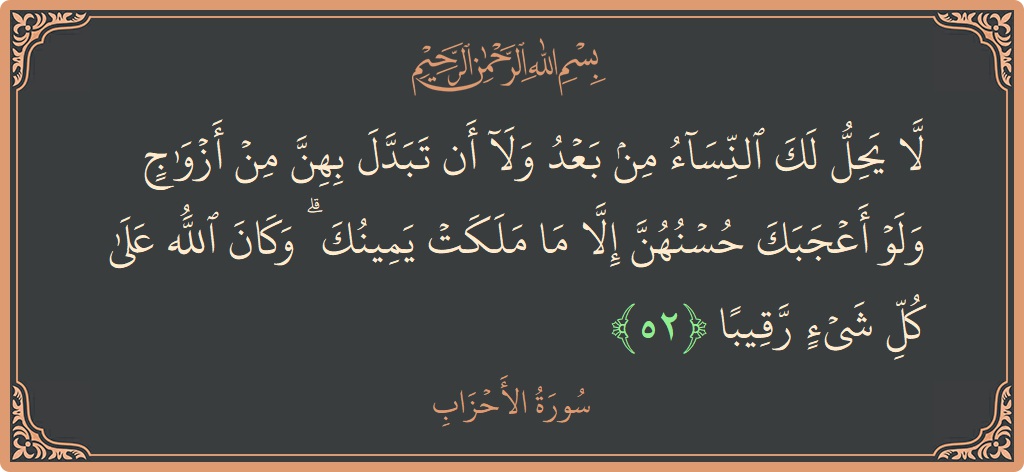 بِسْمِ اللَّهِ الرَّحْمَٰنِ الرَّحِيمِ
لَّا يَحِلُّ لَكَ ٱلنِّسَآءُ مِنۢ بَعْدُ وَلَآ أَن تَبَدَّلَ بِهِنَّ مِنْ أَزْوَٰجٍ
وَلَوْ أَعْجَبَكَ حُسْنُهُنَّ إِلَّا مَا مَلَكَتْ يَمِينُكَ ۗ وَكَانَ ٱللَّهُ عَلَىٰ
كُلِّ شَىْءٍ رَّقِيبًا ﴿٥٢﴾
سُورَةُ الأَحْزَابِ